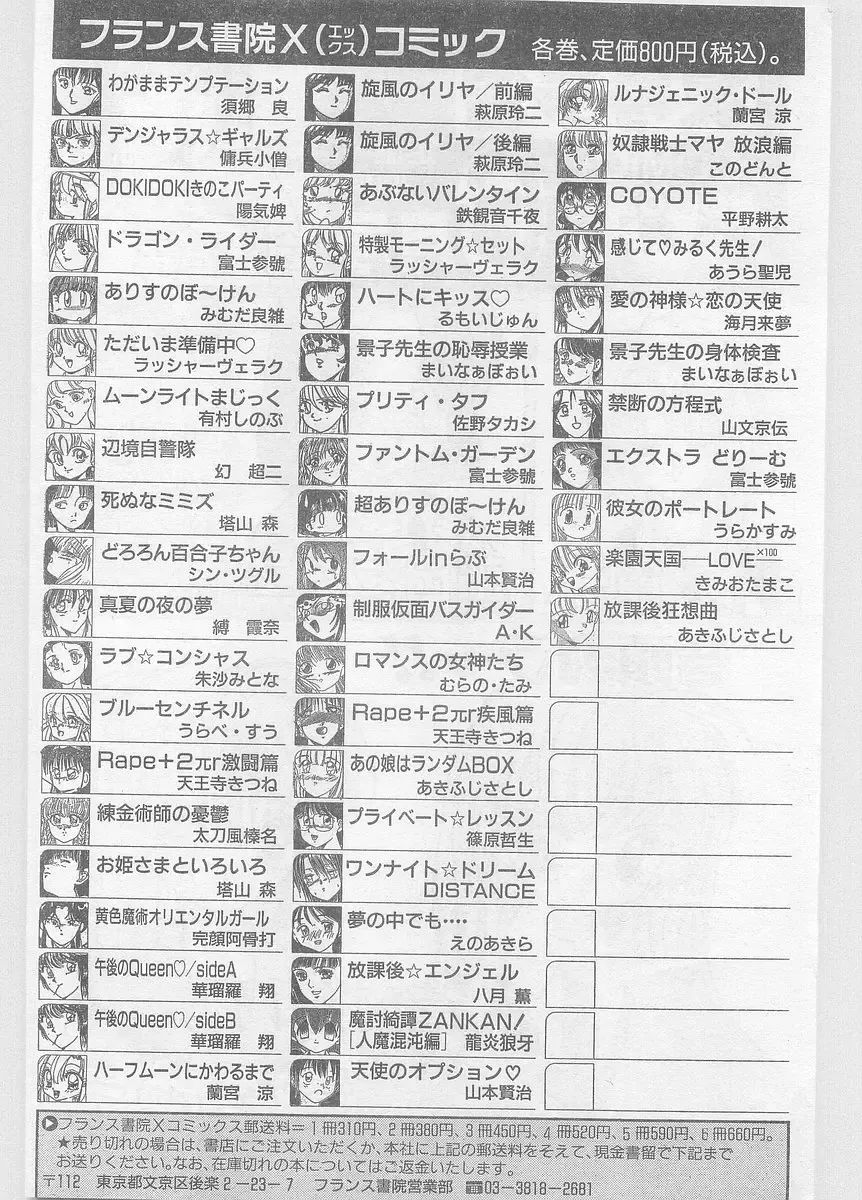 フランス書院X(エックス)コミック 各巻、定価800円(税込)。
わがままテンプテーション
須郷 良
デンジャラス☆ギャルズ
傭兵小僧
DOKIDOKIきのこパーティ
陽気婢
ドラゴン・ライダー
富士参號
ありすのぼ〜けん
みむだ良雑
ただいま準備中♡
ラッシャーヴェラク
ムーンライトまじっく
有村しのぶ
辺境自警隊
幻 超二
死ぬなミミズ
塔山 森
どろろん百合子ちゃん
シン・ツグル
真夏の夜の夢
縛 霞奈
ラブ☆コンシャス
朱沙みとな
ブルーセンチネル
うらべ・すう
Rape+2πr激闘篇
天王寺きつね
練金術師の憂鬱
太刀風榛名
お姫さまといろいろ
塔山 森
黄色魔術オリエンタルガール
完顔阿骨打
午後のQueen♡/sideA
華瑠羅 翔
午後のQueen♡/sideB
華瑠羅 翔
ハーフムーンにかわるまで
蘭宮 涼
旋風のイリヤ/前編
萩原玲二
旋風のイリヤ/後編
萩原玲二
あぶないバレンタイン
鉄観音千夜
特製モーニング☆セット
ラッシャーヴェラク
ハートにキッス♡
るもいじゅん
景子先生の恥辱授業
まいなぁぼぉい
プリティ・タフ
佐野タカシ
ファントム・ガーデン
富士参號
超ありすのぼ〜けん
みむだ良雑
フォールinらぶ
山本賢治
制服仮面バスガイダー
A・K
ロマンスの女神たち
むらの・たみ
Rape+2πr疾風篇
天王寺きつね
あの娘はランダムBOX
あきふじさとし
プライベート☆レッスン
篠原哲生
ワンナイト☆ドリーム
DISTANCE
夢の中でも‥‥
えのあきら
放課後☆エンジェル
八月 薫
魔討綺譚ZANKAN!
[人魔混沌編] 龍炎狼牙
天使のオプション♡
山本賢治
ルナジェニック・ドール
蘭宮 涼
奴隷戦士マヤ 放浪編
このどんと
COYOTE
平野耕太
感じて♡みるく先生!
あうら聖児
愛の神様☆恋の天使
海月来夢
景子先生の身体検査
まいなぁぼぉい
禁断の方程式
山文京伝
エクストラ どりーむ
富士参號
彼女のポートレート
うらかすみ
楽園天国―LOVE×100
きみおたまこ
放課後狂想曲
あきふじさとし
フランス書院Xコミックス郵送料=1冊310円、2冊380円、3冊450円、4冊520円、5冊590円、6冊660円。
★売り切れの場合は、書店にご注文いただくか、本社に上記の郵送料をそえて、現金書留で下記まで
お送りください。なお、在庫切れの本についてはご返金いたします。
〒112 東京都文京区後楽2-23-7 フランス書院営業部 ☎03-3818-2681